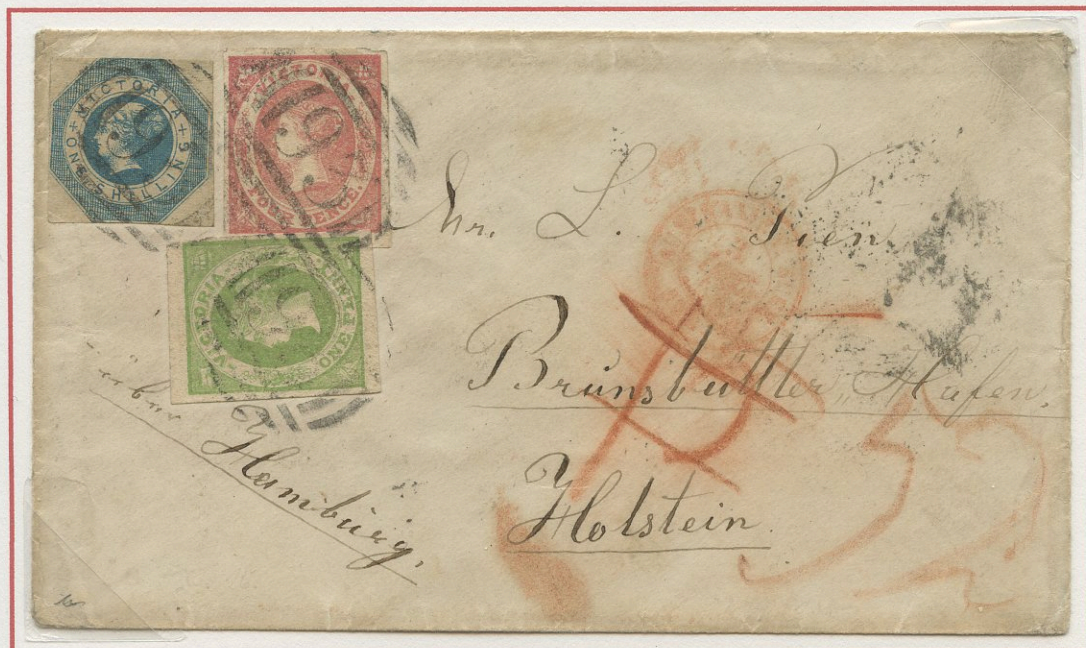 VICTORIA
ONE SHILLING
VICTORIA
FOUR PENCE
VICTORIA
ONE PENNY
19
Mr. L.
Brünsbüttler Hafen,
Holstein.
über
Hamburg.